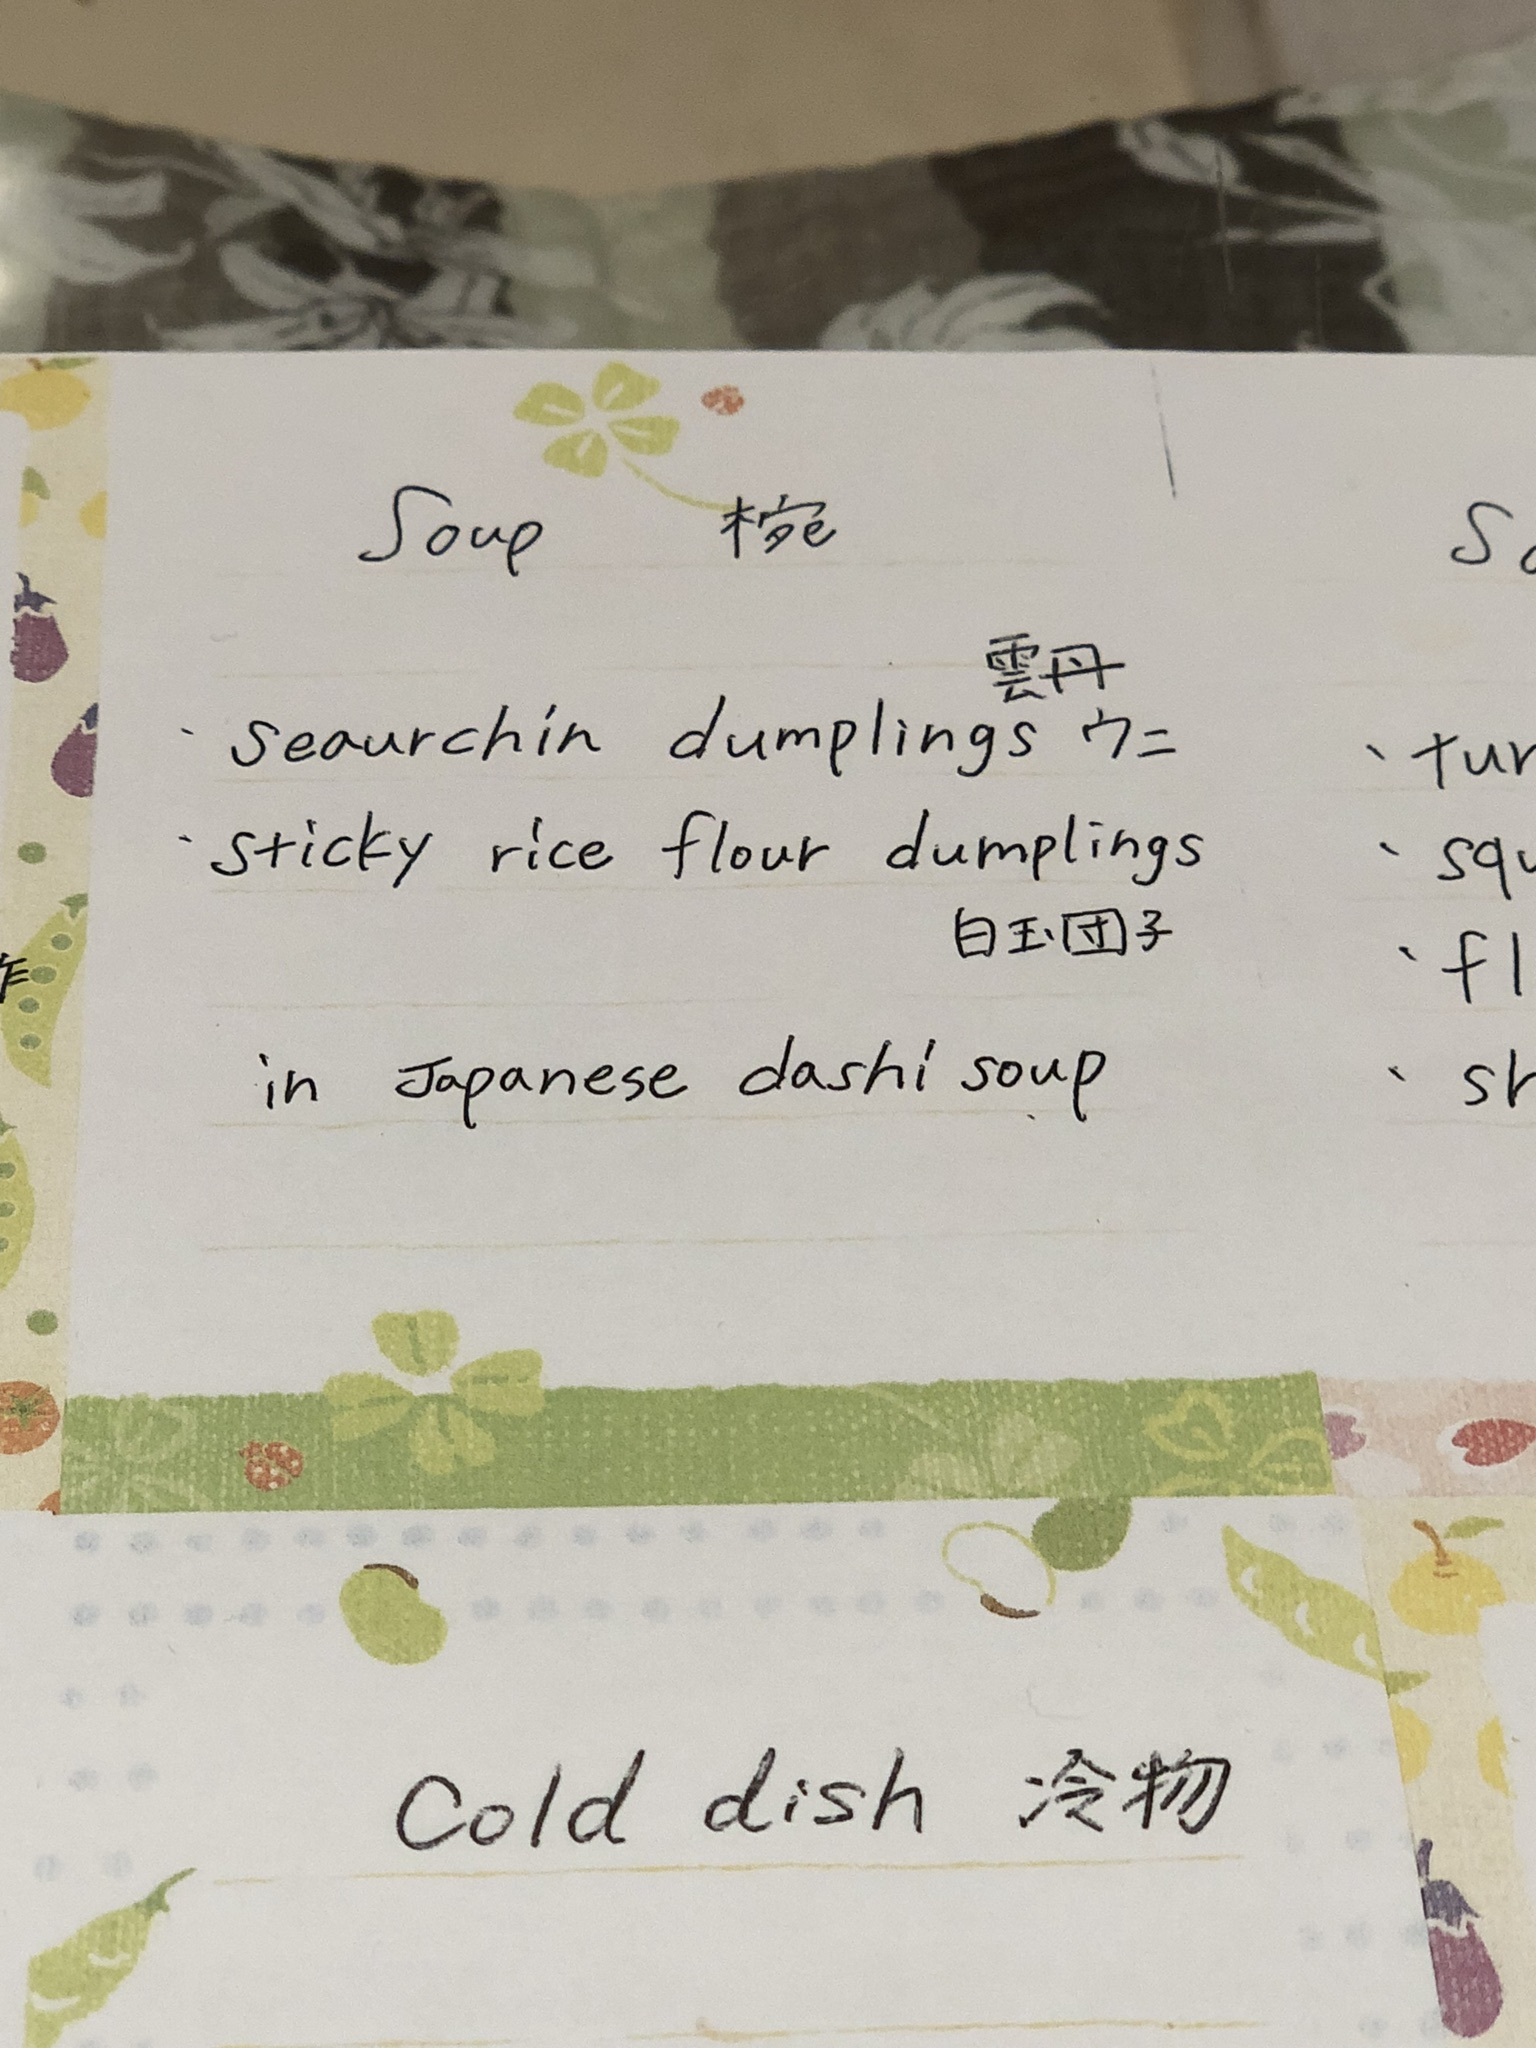 Soup 椀
雲丹
・seaurchin dumplings ウニ
・sticky rice flour dumplings
白玉団子
in Japanese dashi soup
Cold dish 冷物
、tur
、squ
、fl